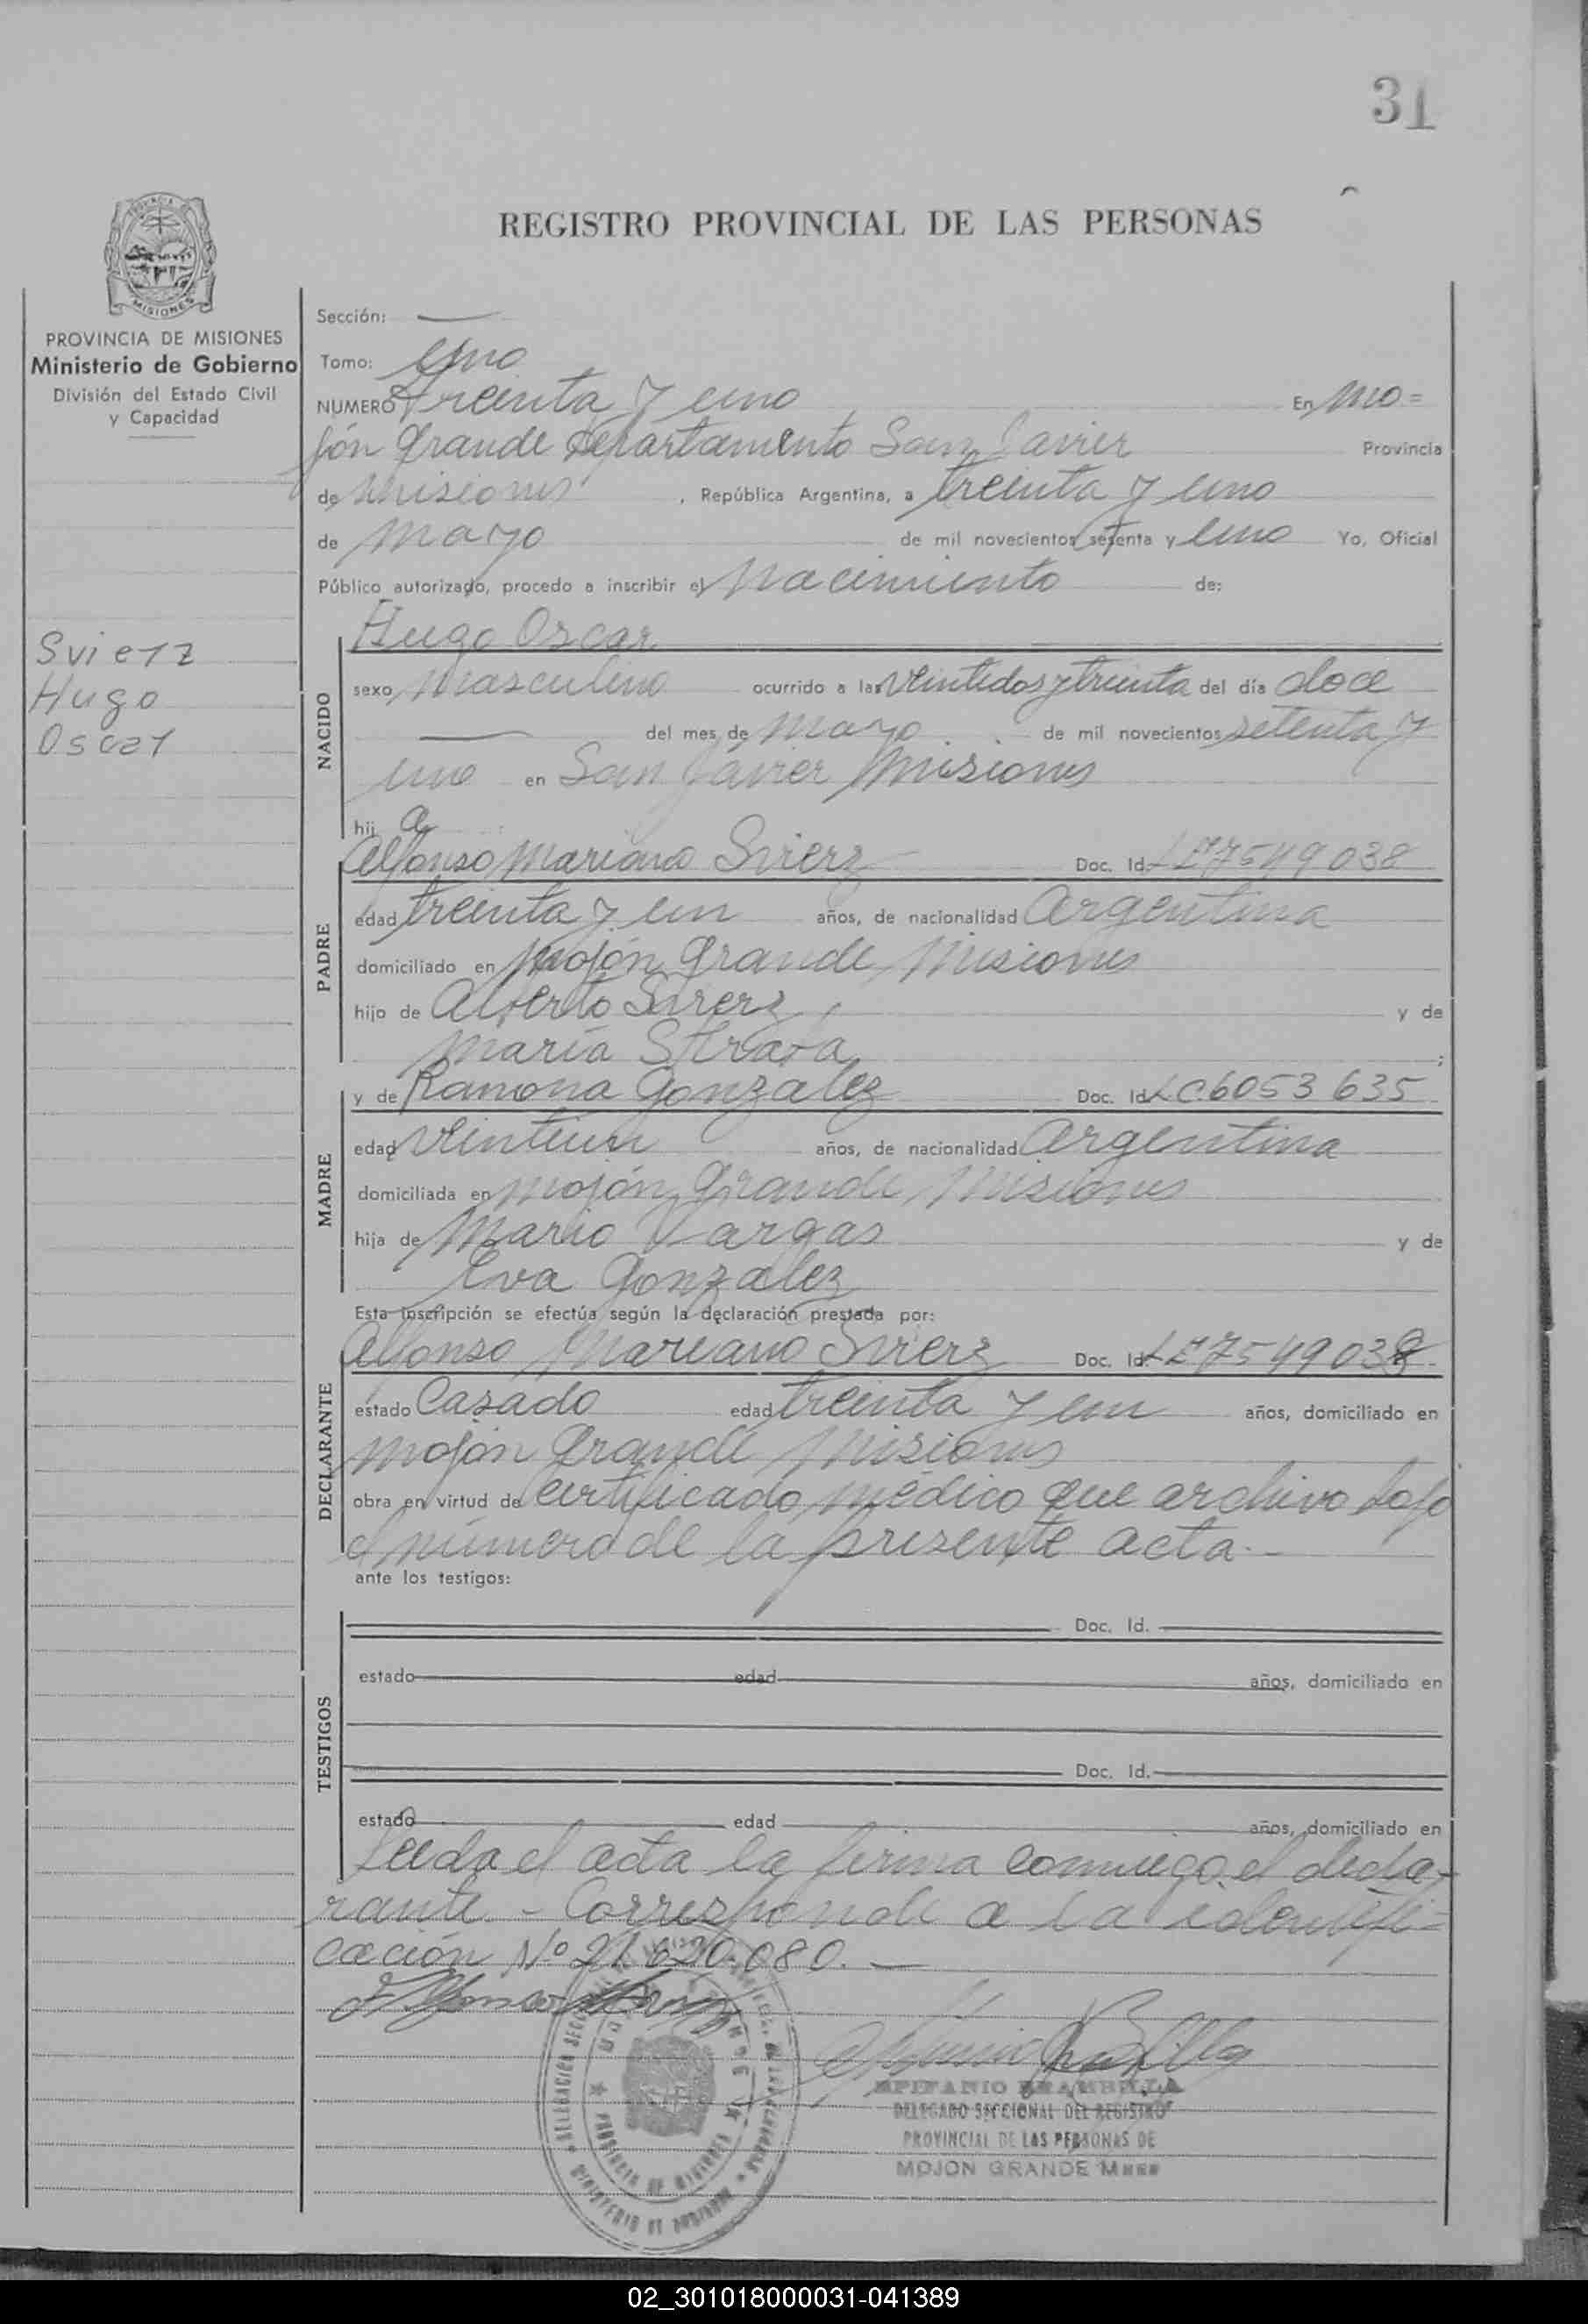 31
REGISTRO PROVINCIAL DE LAS PERSONAS
MISIONES
PROVINCIA DE MISIONES
Ministerio de Gobierno
División del Estado Civil
y Capacidad
Svierz
Hugo
Oscar
Sección:
Tomo: Uno
NUMERO Treinta y uno En Mo=
jón Grande Departamento San Javier Provincia
de Misiones , República Argentina, a treinta y uno
de Mayo de mil novecientos setenta y Uno Yo, Oficial
Público autorizado, procedo a inscribir el Nacimiento de:
NACIDO
Hugo Oscar
sexo Masculino ocurrido a las Veintidos y treinta del día doce
del mes de Mayo de mil novecientos setenta y
uno en San Javier Misiones
hij
PADRE
Alfonso Mariano Svierz Doc. Id. LE7549038
edad treinta y un años, de nacionalidad Argentina
domiciliado en Mojón Grande Misiones
hijo de Alberto Svierz y de
María ;
MADRE
y de Ramona Gonzalez Doc. Id. LC6053635
edad Veintiun años, de nacionalidad Argentina
domiciliada en Mojón Grande Misiones
hija de Mario Vargas y de
Eva Gonzalez
Esta inscripción se efectúa según la declaración prestada por:
DECLARANTE
Alfonso Mariano Svierz Doc. Id. LE7549038
estado Casado edad treinta y un años, domiciliado en
Mojón Grande Misiones
obra en virtud de Certificado médico que archivo bajo
el número de la presente acta.-
ante los testigos:
TESTIGOS
Doc. Id.
estado edad años, domiciliado en
Doc. Id.
estado edad años, domiciliado en
Leeda el acta la firma conmigo el decla-
rante.- Corresponde a la identifi-
cación Nº 21.620.080.-
EPIFANIO BRAMBILLA
DELEGADO SECCIONAL DEL REGISTRO
PROVINCIAL DE LAS PERSONAS DE
MOJON GRANDE Mnes
PROVINCIA DE MISIONES
MINISTERIO DE GOBIERNO
02_301018000031-041389